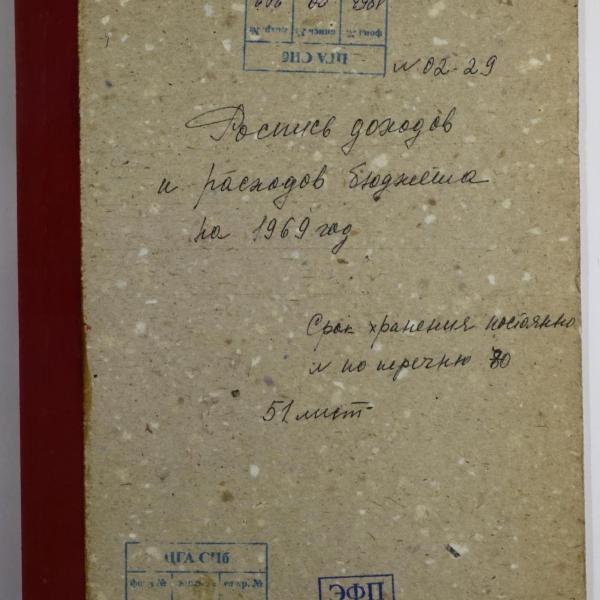 ЦГА СПб
фонд № опись № ед.хр. №
№ 02-29
Роспись доходов
и расходов бюджета
на 1969 год
Срок хранения постоянно
№ по перечню 80
51 лист
ЦГА СПб
фонд № опись № ед.хр. №
ЭФП